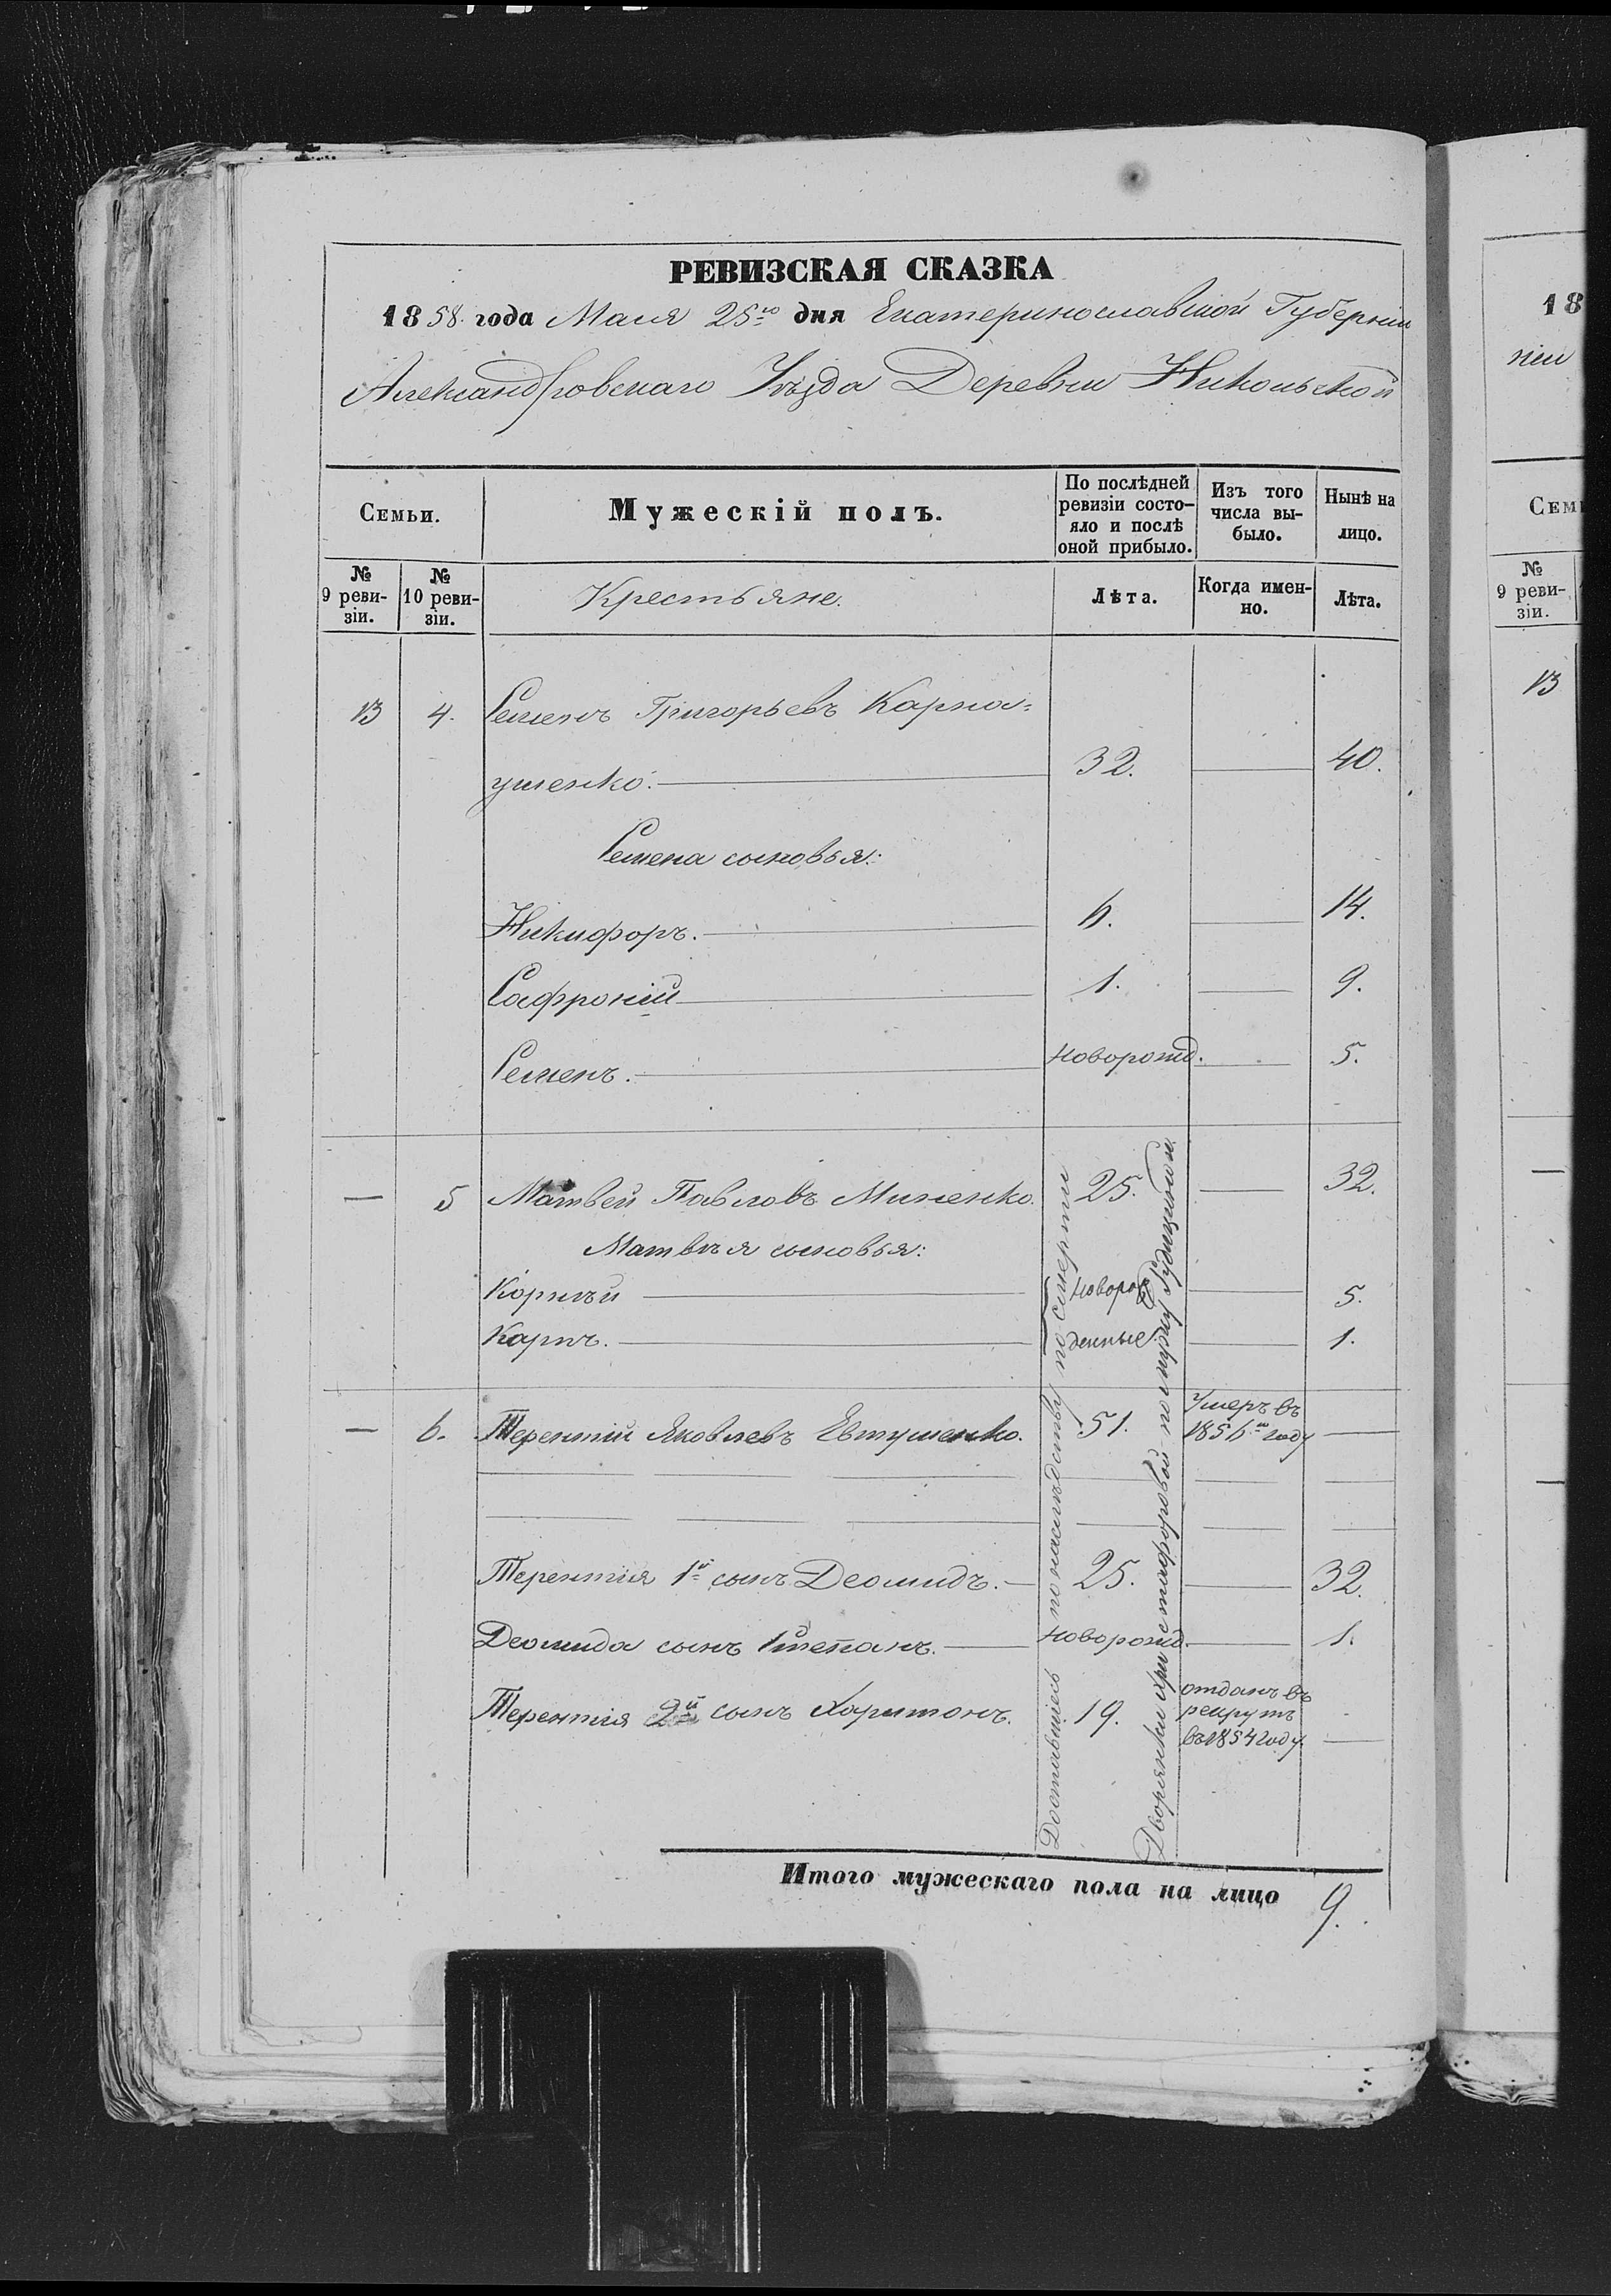 РЕВИЗСКАЯ СКАЗКА
1858 года Маия 25го дня Екатеринославской Губерніи
Александровскаго Уѣзда Деревни Никольской
Семьи.
Мужескій полъ.
По послѣдней ревизіи состо-
яло и послѣ оной прибыло.
Изъ того числа вы-
было.
Нынѣ на лицо.
№ 9 реви-
зіи.
№ 10 реви-
зіи.
Крестьяне.
Лѣта.
Когда имен-
но.
Лѣта.
13 4. Семенъ Григорьевъ Карна=
ушенко. 32. 40.
Семена сыновья:
Никифоръ. 6. 14.
Сафроній 1. 9.
Семенъ. новорожд. 5.
5 Матвей Павловъ Миненко. 25. 32.
Матвѣя сыновья:
Корнѣй новорож 5.
Карпъ. денные 1.
6. Терентій Яковлевъ Евтушенко. 51. Умеръ въ
1856м году
Терентія 1й сынъ Деомидъ. 25. 32.
Деомида сынъ Степанъ. новорожд. 1.
Терентія 2й сынъ Харитонъ. 19. отданъ въ
рекруты
въ 1854 году
Доставшіесь по наслѣдству по смерти
Дворянки
по мужу
Итого мужескаго пола на лицо 9.
18
ніи
Семь
№
9 реви-
зіи.
13